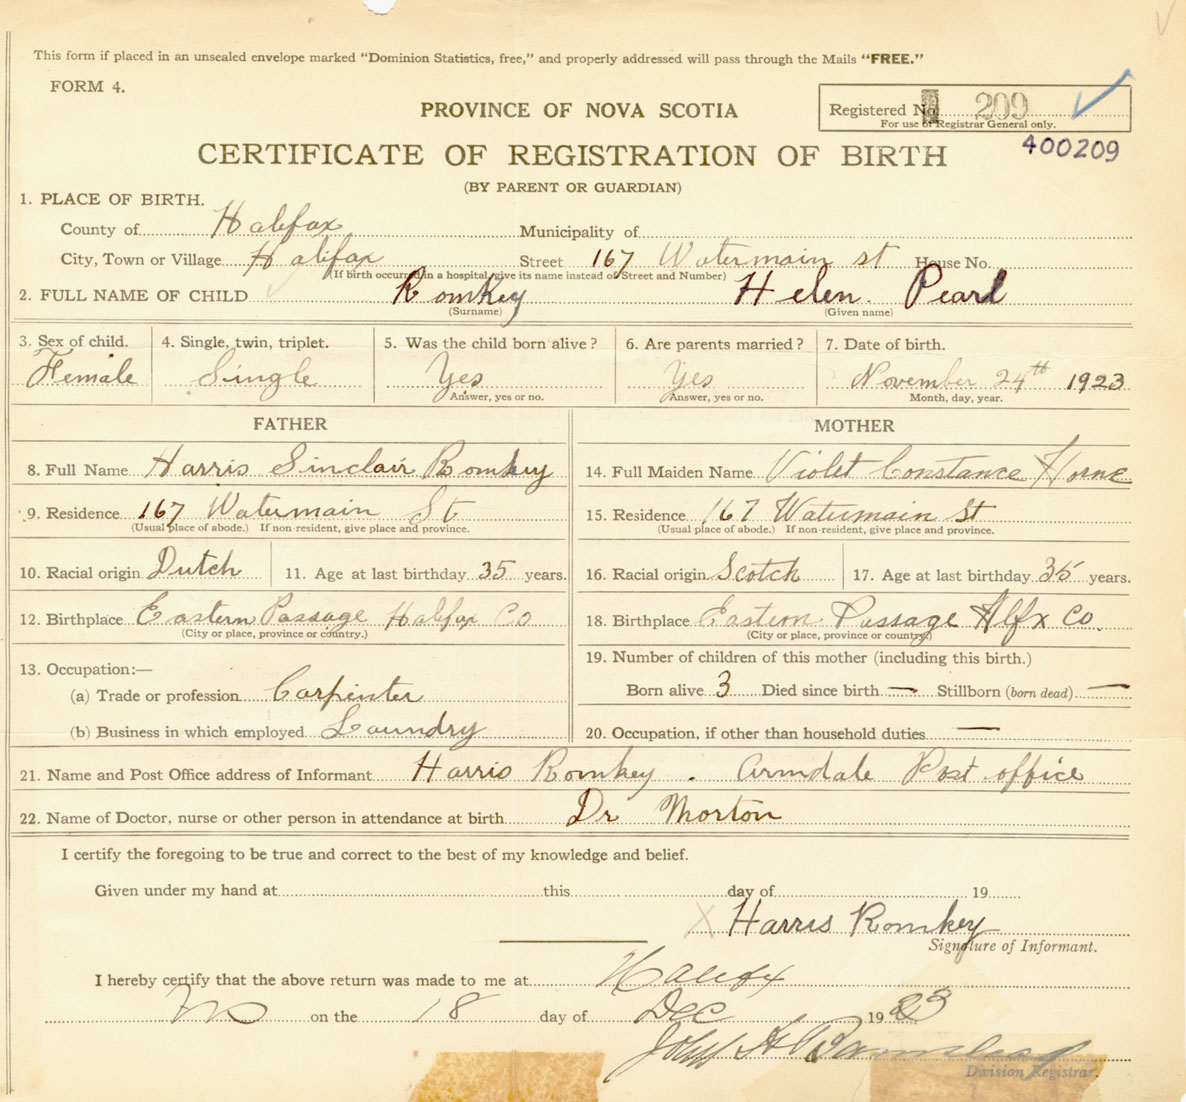 This form if placed in an unsealed envelope marked “Dominion Statistics, free,” and properly addressed will pass through the Mails “FREE.”
FORM 4.
PROVINCE OF NOVA SCOTIA
Registered No. 209
For use of Registrar General only.
400209
CERTIFICATE OF REGISTRATION OF BIRTH
(BY PARENT OR GUARDIAN)
1. PLACE OF BIRTH.
County of Halifax Municipality of
City, Town or Village Halifax Street 167 Watermain st House No.
(If birth occurred in a hospital, give its name instead of Street and Number)
2. FULL NAME OF CHILD Romkey Helen. Pearl
(Surname) (Given name)
3. Sex of child. 4. Single, twin, triplet. 5. Was the child born alive? 6. Are parents married? 7. Date of birth.
Female Single Yes Yes November 24th 1923
Answer, yes or no. Answer, yes or no. Month, day, year.
FATHER
8. Full Name Harris Sinclair Romkey
9. Residence 167 Watermain St
(Usual place of abode.) If non-resident, give place and province.
10. Racial origin Dutch 11. Age at last birthday 35 years.
12. Birthplace Eastern Passage Halifax Co
(City or place, province or country.)
13. Occupation:—
(a) Trade or profession Carpinter
(b) Business in which employed Laundry
MOTHER
14. Full Maiden Name Violet Constance Horne
15. Residence 167 Watermain St
(Usual place of abode.) If non-resident, give place and province.
16. Racial origin Scotch 17. Age at last birthday 35 years.
18. Birthplace Eastern Passage Hlfx Co.
(City or place, province or country.)
19. Number of children of this mother (including this birth.)
Born alive 3 Died since birth — Stillborn (born dead) —
20. Occupation, if other than household duties —
21. Name and Post Office address of Informant Harris Romkey . Armdale Post office
22. Name of Doctor, nurse or other person in attendance at birth Dr Morton
I certify the foregoing to be true and correct to the best of my knowledge and belief.
Given under my hand at this day of 19
X Harris Romkey
Signature of Informant.
I hereby certify that the above return was made to me at Halifx
on the 18 day of Dec 1923
John A
Division Registrar.